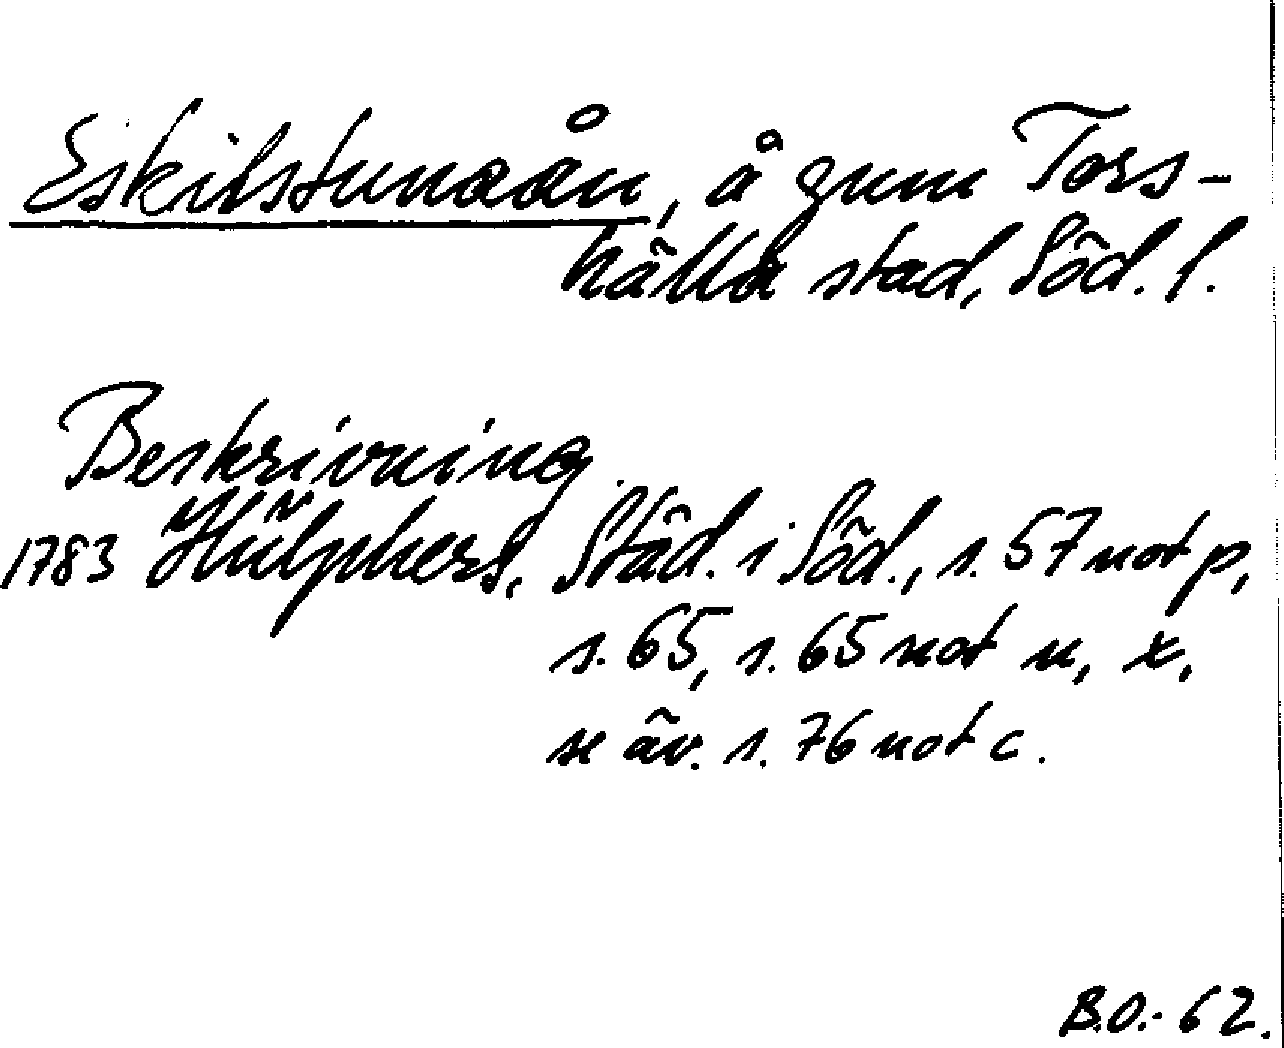 Eskilstunaån, å gnm Tors-
hälla stad, Söd. l.
Beskrivning.
1783 Hülphers, Städ. i Söd., s. 57 not p,
s. 65, s. 65 not u, x,
se äv. s. 76 not c.
B.O.-62.